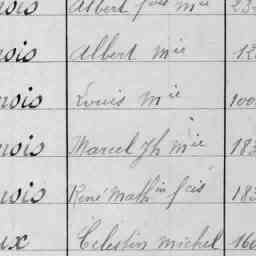 Albert fois Mie 23
ois Albert Mie 12
ois Louis Mie 100
ois Marcel Jh Mie 183
ois René Mathin fcis 183
ux Célestin Michel 160